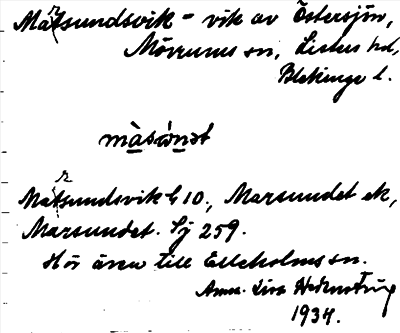 Marsundsvik - vik av Östersjön,
Mörrums sn, Listers hd,
Blekinge l.
màsúnət
Marsundsvik G 10., Marsundet ek,
Marsundet. Sj 259.
Hör även till Elleholms sn.
Anna-Lisa
1934.